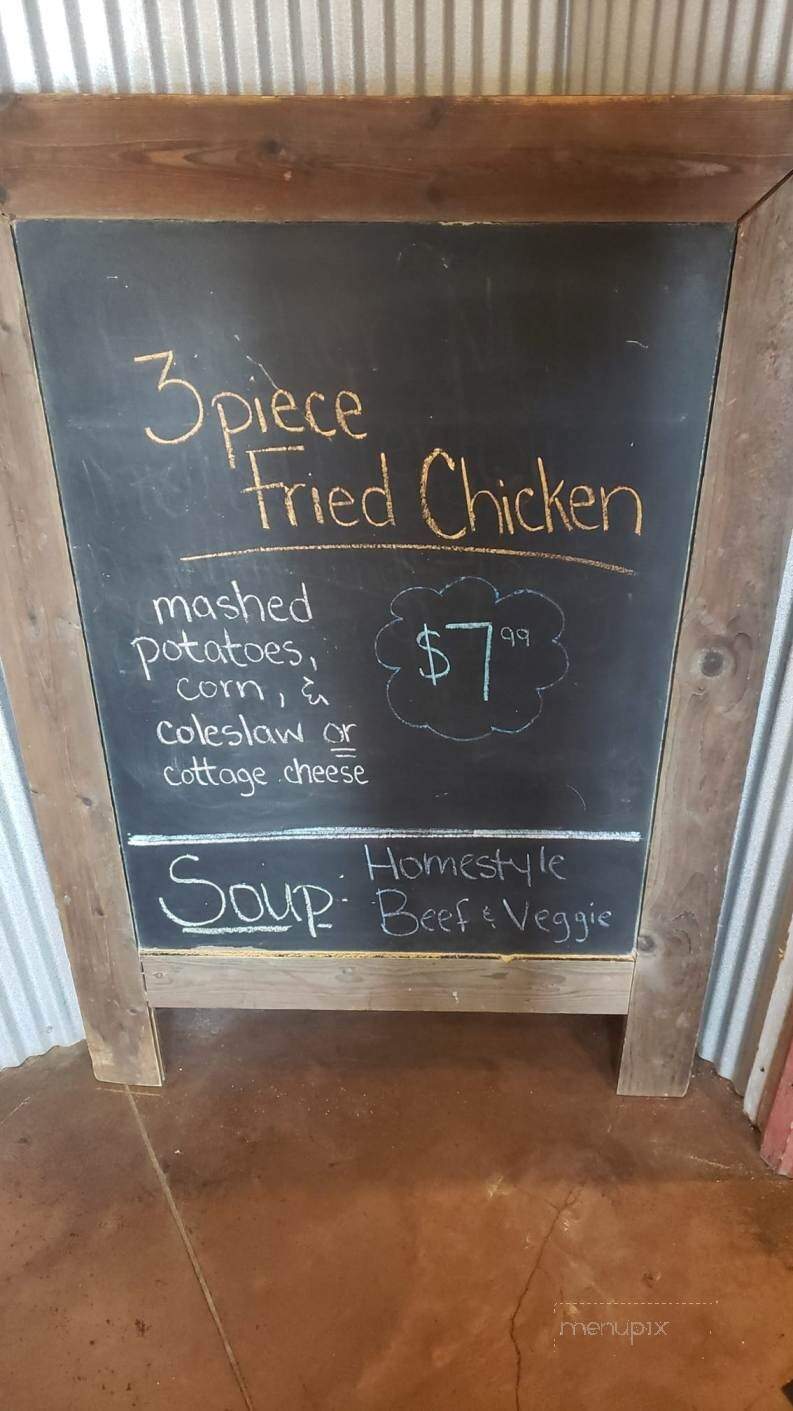 3 piece
Fried Chicken
mashed
potatoes,
corn, &
coleslaw or
cottage cheese
$7 99
Soup
Homestyle
Beef & Veggie
menupix